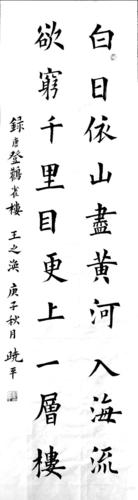 白日依山盡黃河入海流
欲窮千里目更上一層樓
錄唐登鸛雀樓 王之渙 庚子秋月 曉平